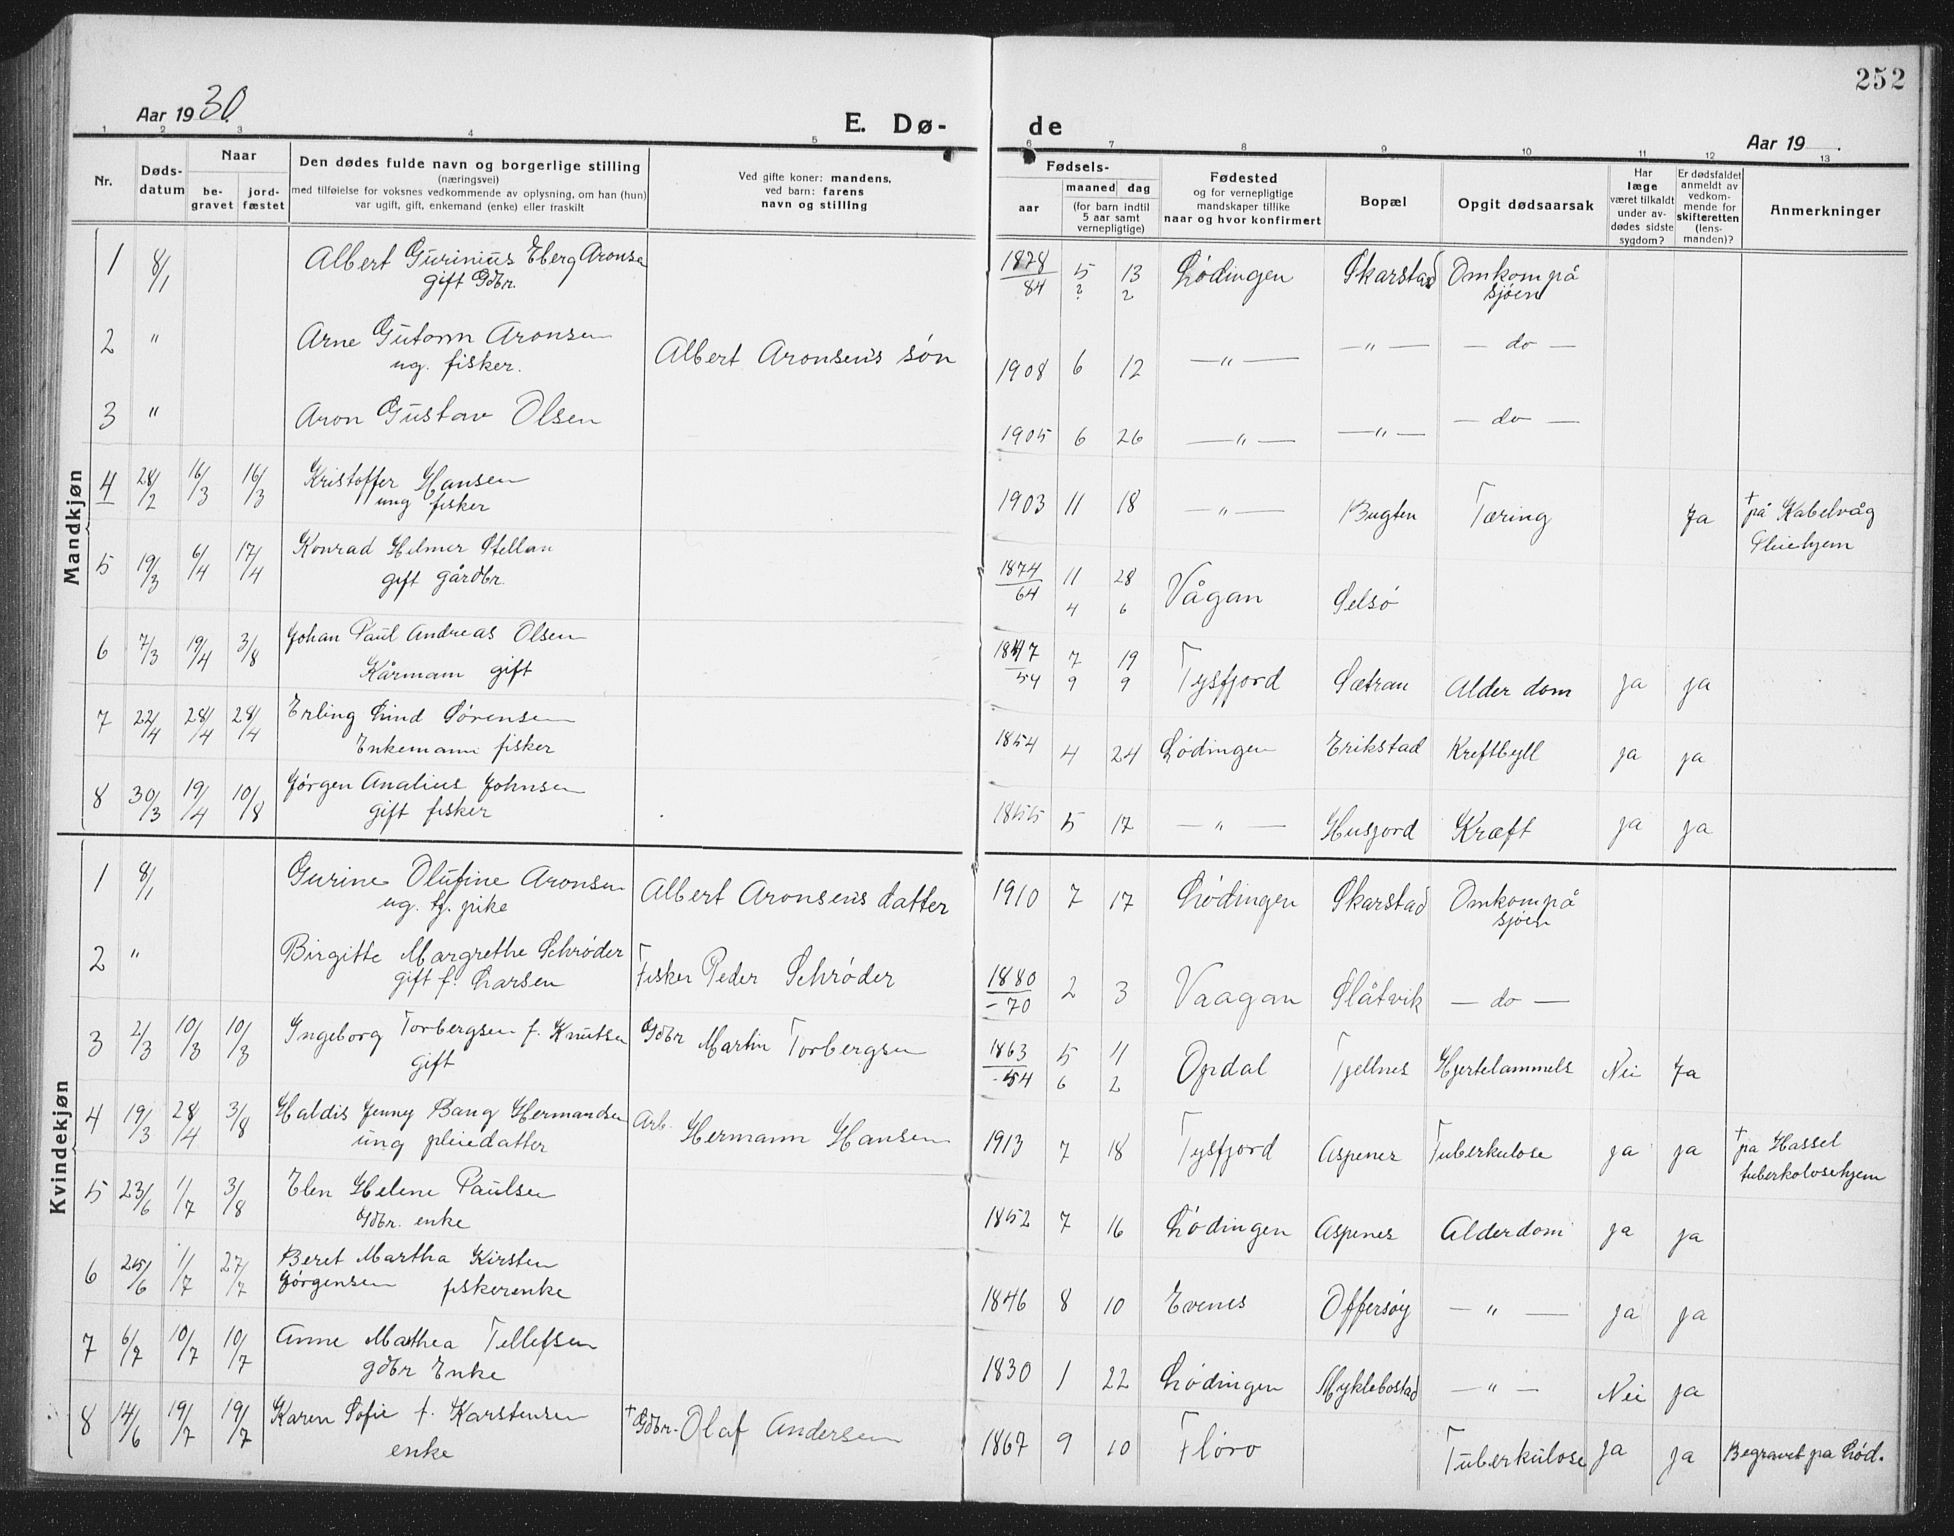 252
Aar 1930.
E. Dø-
de
Aar 19 .
1 2 3 4 5 6 7 8 9 10 11 12 13
Nr.
Døds-
datum
Naar
be-
gravet
jord-
fæstet
Den dødes fulde navn og borgerlige stilling
(næringsvei)
med tilføielse for voksnes vedkommende av oplysning, om han (hun)
var ugift, gift, enkemand (enke) eller fraskilt
Ved gifte koner: mandens,
ved barn: farens
navn og stilling
Fødsels-
aar
maaned dag
(for barn indtil
5 aar samt
vernepligtige)
Fødested
og for vernepligtige
mandskaper tillike
naar og hvor konfirmert
Bopæl
Opgit dødsaarsak
Har
læge
været tilkaldt
under av-
dødes sidste
sygdom?
Er dødsfaldet
anmeldt av
vedkom-
mende for
skifteretten
(lens-
manden)?
Anmerkninger
Mandkjøn
1 8/1 Albert Gurinius Eberg Aronse 1878 5 13 Lødingen Skarstad Omkom på
gift Gdbr. 84 2 2 sjøen
2 " Arne Gutorm Aronsen Albert Aronsens søn 1908 6 12 — " — — " — — do —
ug. fisker.
3 " Aron Gustav Olsen 1905 6 26 — " — — " — — do —
4 28/2 16/3 16/3 Kristoffer Hansen 1903 11 18 — " — Bugten Tæring Ja † på Kabelvåg
ung fisker Pleiehjem
5 19/3 6/4 17/4 Konrad Helmer Stellan 1874 11 28 Vågan Selsø
gift gårdbr. 64 4 6
6 7/3 19/4 3/8 Johan Paul Andreas Olsen 1847 7 19 Tysfjord Sætran Alderdom ja ja
Kårmann gift 54 9 9
7 22/4 28/4 28/4 Erling Lind Sørensen 1854 4 24 Lødingen Erikstad Kreftbyll ja ja
Enkemann fisker
8 30/3 19/4 10/8 Jørgen Analius Johnsen 1855 5 17 — " — Husjord Kræft ja ja
gift fisker
Kvindekjøn
1 8/1 Gurine Olufine Aronsen Albert Aronsens datter 1910 7 17 Lødingen Skarstad Omkom på
ug. tj. pike sjøen
2 " Birgitte Margrethe Schrøder Fisker Peder Schrøder 1880 2 3 Vaagan Slåtvik — do —
gift f. Larsen -70
3 2/3 10/3 10/3 Ingeborg Torbergsen f. Knutsen Gdbr Martin Torbergsen 1863 5 11 Opdal Tjellnes Hjertelammels Nei Ja
gift -54 6 2
4 19/3 28/4 3/8 Haldis Jenny Bang Hermandsen Arb. Hermann Hansen 1913 7 18 Tysfjord Aspenes Tuberkulose ja ja † pa Hassel
ung pleiedatter tuberkolosehjem
5 23/6 1/7 3/8 Elen Helene Paulsen 1852 7 16 Lødingen Aspenes Alderdom ja ja
Gdbr. enke
6 25/6 1/7 27/7 Beret Martha Kirsten 1846 8 10 Evenes Offersøy — " — ja ja
Jørgensen fiskerenke
7 6/7 10/7 10/7 Anne Mathea Tellefsen 1830 1 22 Lødingen Myklebostad — " — Nei ja
gdbr Enke
8 14/6 19/7 19/7 Karen Sofie f. Karstensen † Gdbr. Olaf Andersen 1867 9 10 Florø Tuberkulose ja ja Begravet pa Lød.
enke